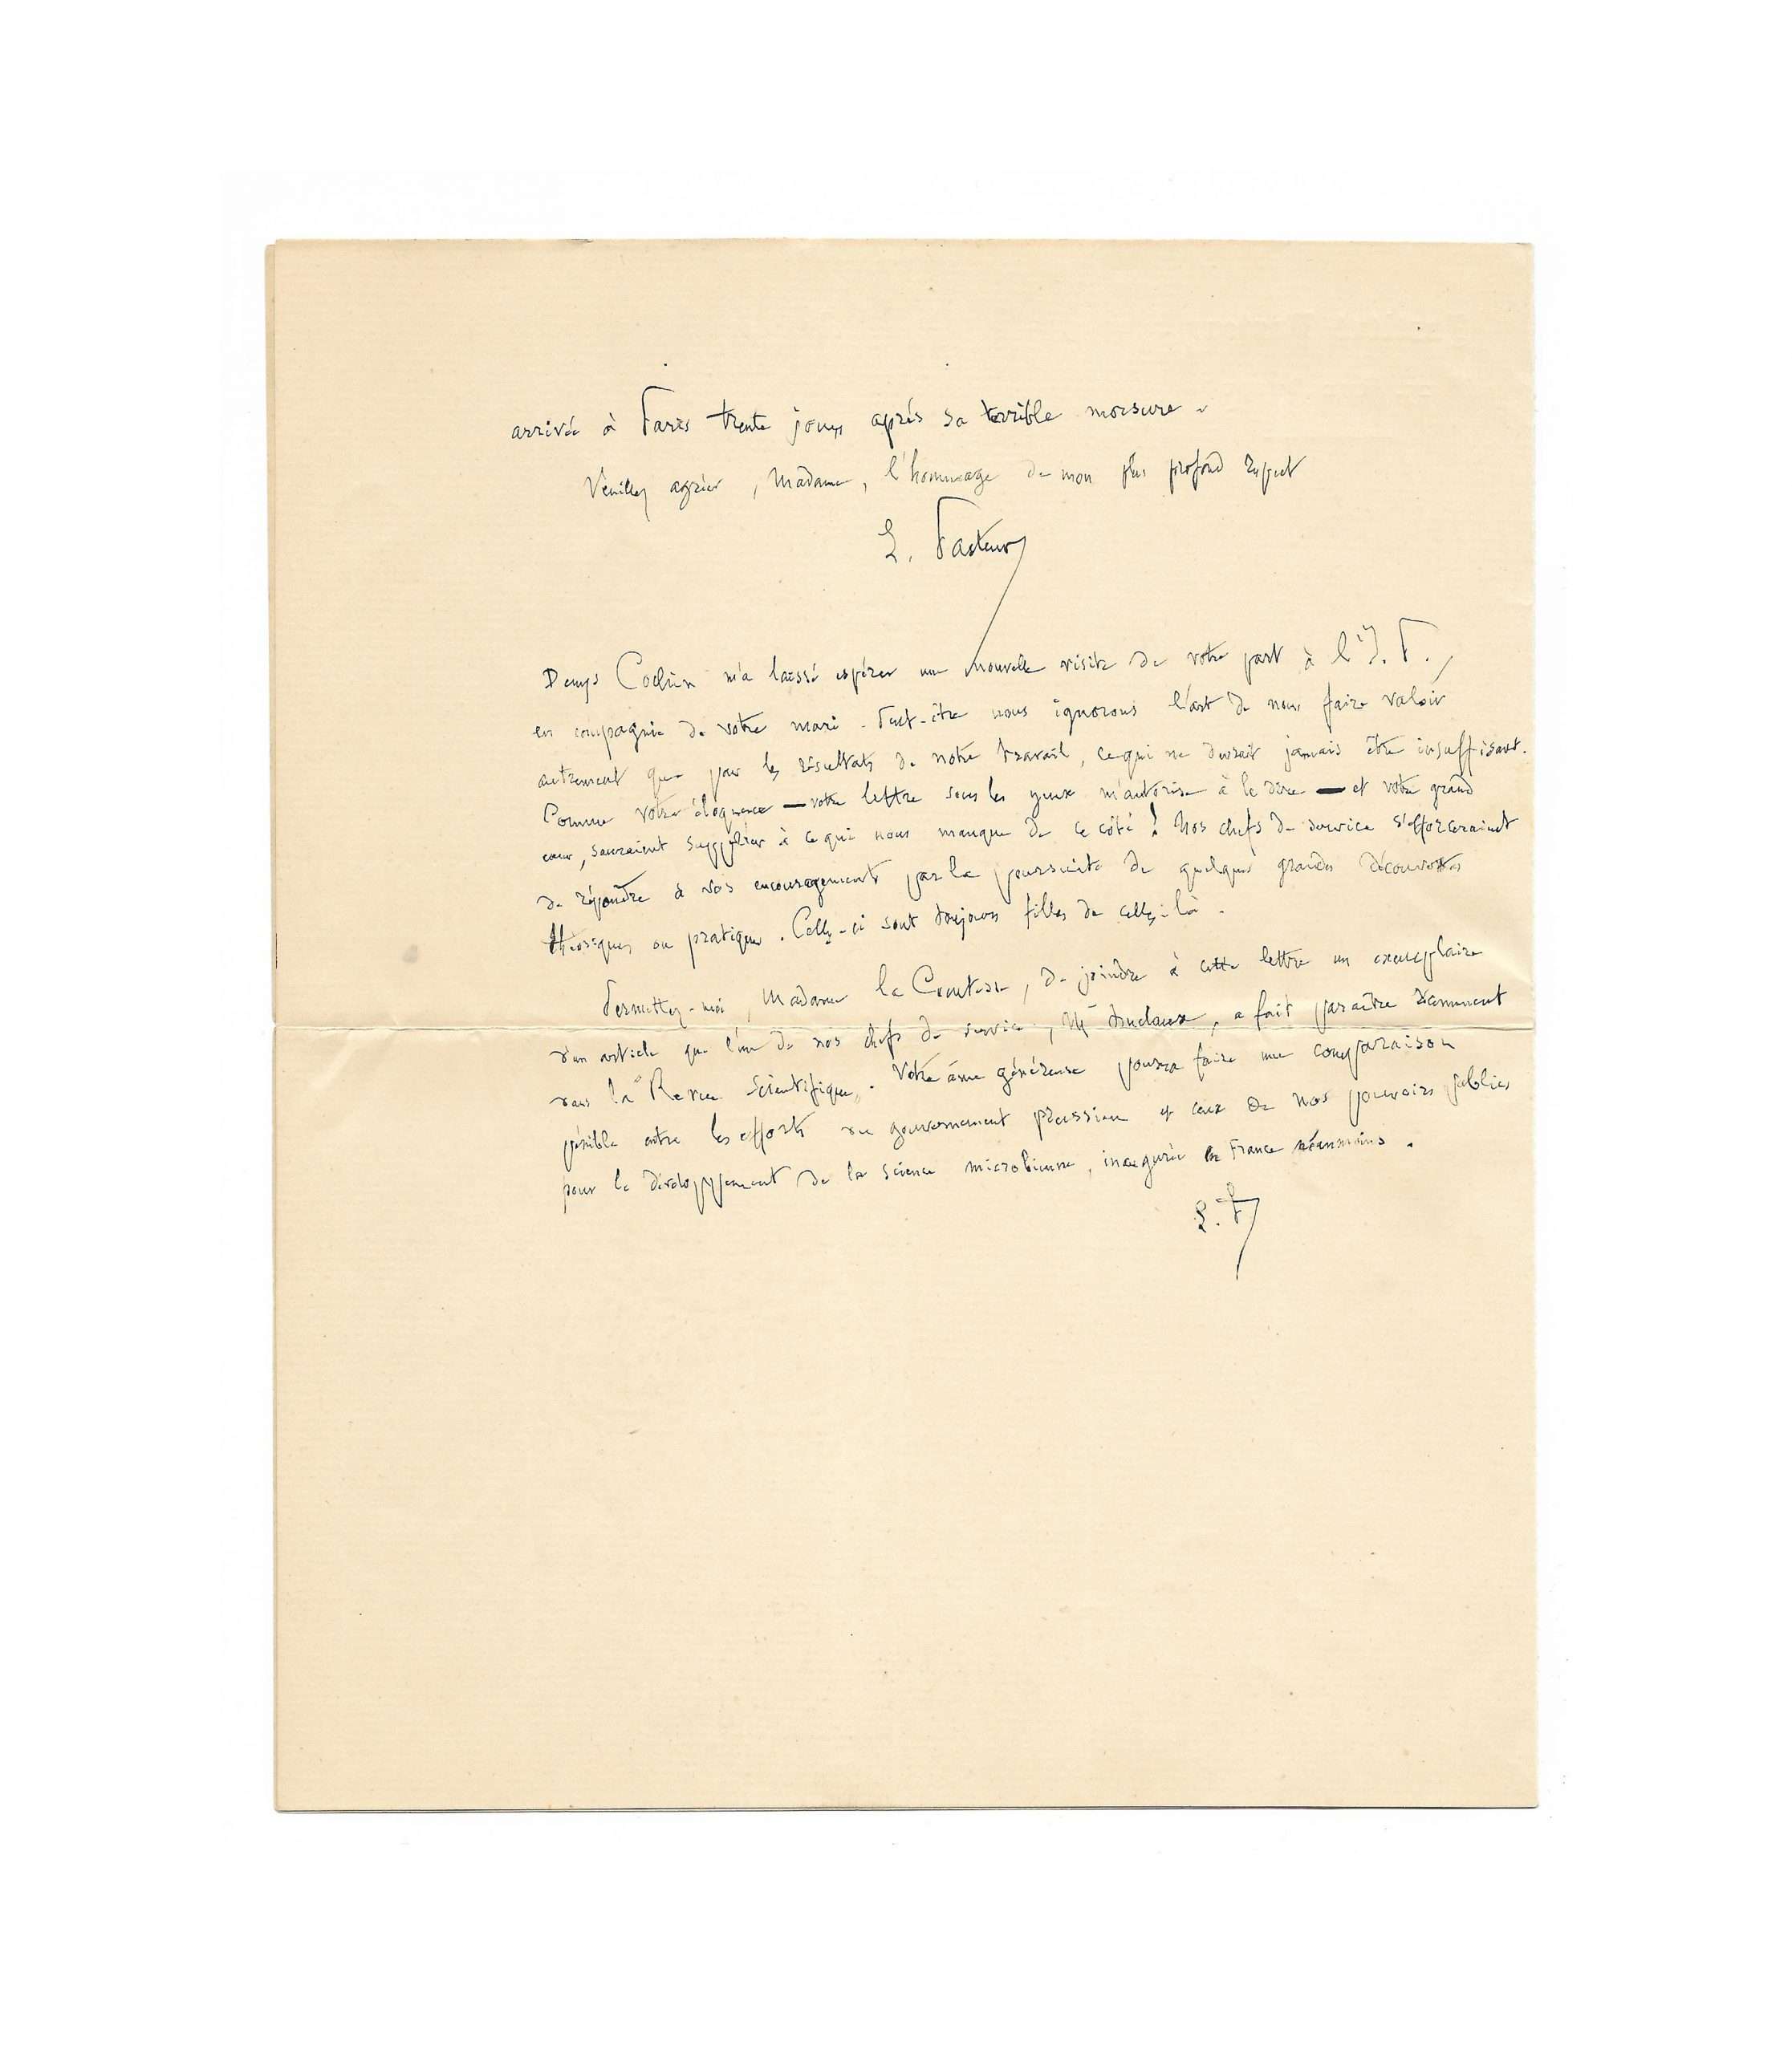 arrivée à Paris trente jours après sa terrible morsure.
Veuillez agréer, Madame, l'hommage de mon plus profond respect
L. Pasteur
Denys Cochin m'a laissé espérer une nouvelle visite de votre part à l'I. P.,
en compagnie de votre mari. Peut-être nous ignorons l'art de nous faire valoir
autrement que par les résultats de notre travail, ce qui ne devrait jamais être insuffisant.
Comme votre éloquence — votre lettre sous les yeux m'autorise à le dire — et votre grand
cœur, sauraient suppléer à ce qui nous manque de ce côté! Nos chefs de service s'efforceraient
de répondre à vos encouragements par la poursuite de quelques grandes découvertes
théoriques ou pratiques. Celles-ci sont toujours filles de celles-là.
Permettez-moi, Madame la Comtesse, de joindre à cette lettre un exemplaire
d'un article que l'un de nos chefs de service, Mr Duclaux, a fait paraître récemment
dans la "Revue Scientifique". Votre âme généreuse pourra faire une comparaison
pénible entre les efforts du gouvernement prussien et ceux de nos pouvoirs publics
pour le développement de la science microbienne, inaugurée en France néanmoins.
L. P.